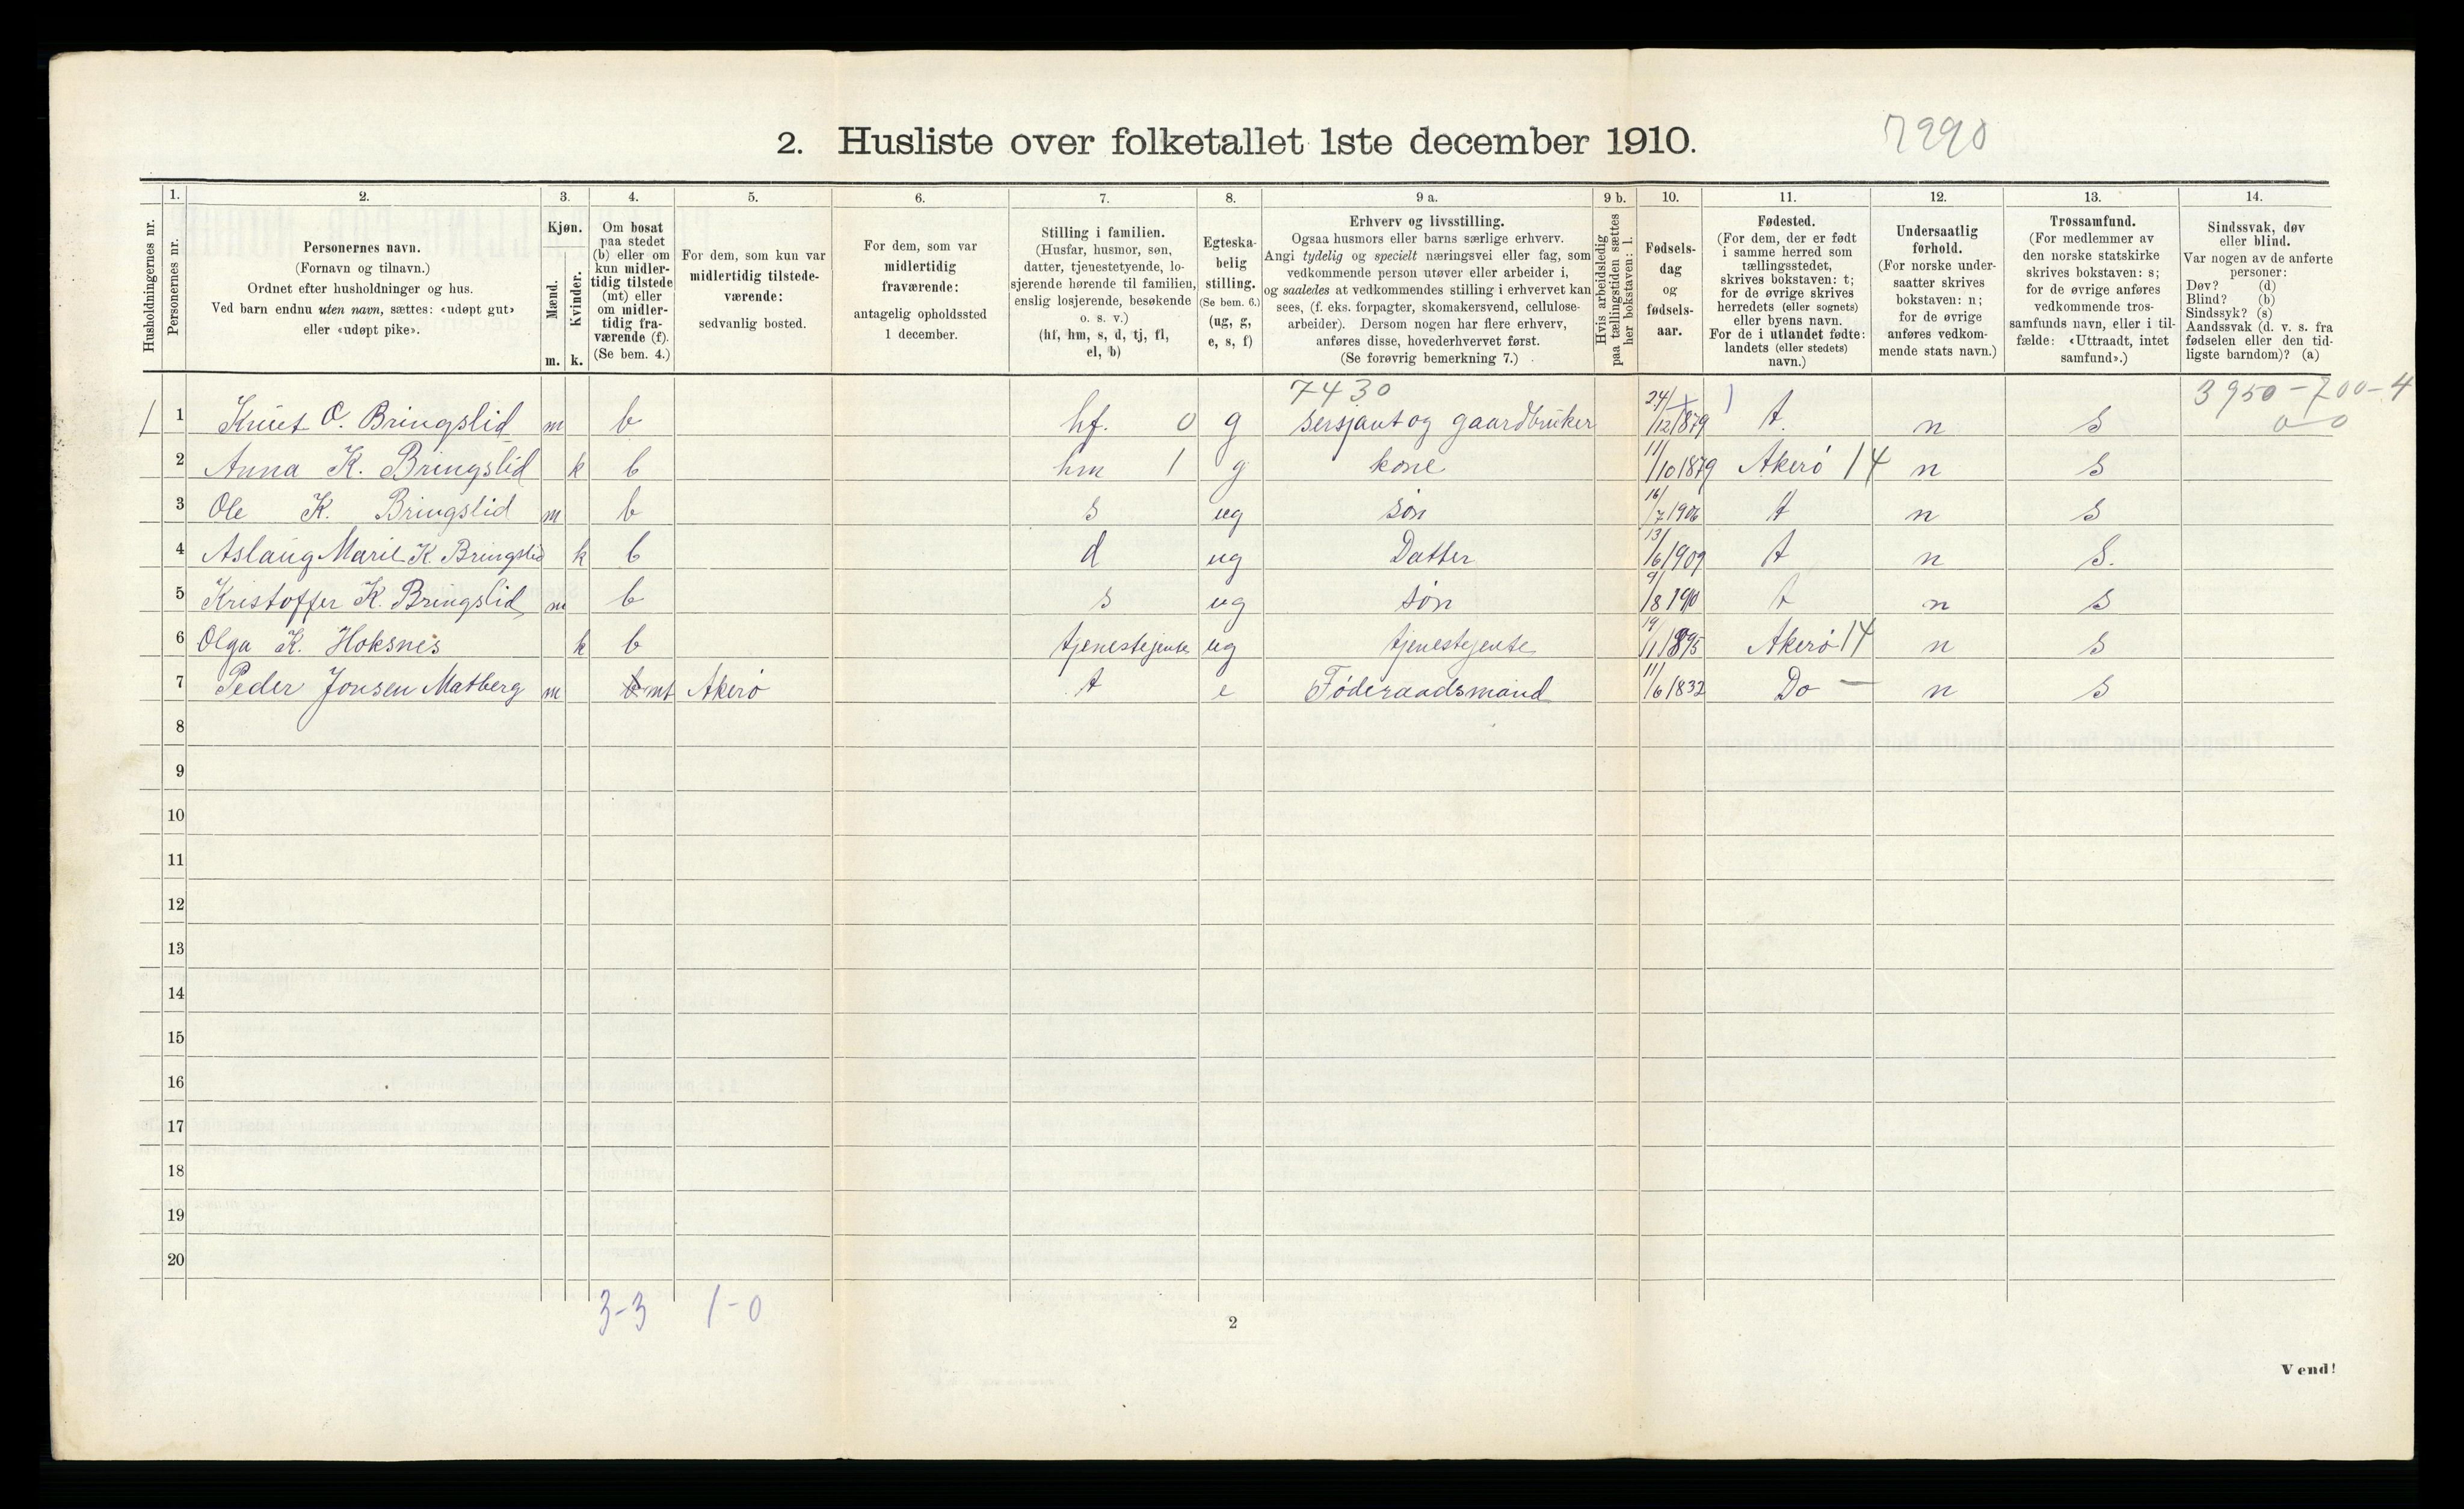 2. Husliste over folketallet 1ste december 1910.
7290
1. 2. 3. 4. 5. 6. 7. 8. 9 a. 9 b. 10. 11. 12. 13. 14.
Husholdningernes nr.
Personernes nr.
Personernes navn.
(Fornavn og tilnavn.)
Ordnet efter husholdninger og hus.
Ved barn endnu uten navn, sættes: «udøpt gut»
eller «udøpt pike».
Kjøn.
Mænd.
m.
Kvinder.
k.
Om bosat
paa stedet
(b) eller om
kun midler-
tidig tilstede
(mt) eller
om midler-
tidig fra-
værende (f).
(Se bem. 4.)
For dem, som kun var
midlertidig tilstede-
værende:
sedvanlig bosted.
For dem, som var
midlertidig
fraværende:
antagelig opholdssted
1 december.
Stilling i familien.
(Husfar, husmor, søn,
datter, tjenestetyende, lo-
sjerende hørende til familien,
enslig losjerende, besøkende
o. s. v.)
(hf, hm, s, d, tj, fl,
el, b)
Egteska-
belig
stilling.
(Se bem. 6.)
(ug, g,
e, s, f)
Erhverv og livsstilling.
Ogsaa husmors eller barns særlige erhverv.
Angi tydelig og specielt næringsvei eller fag, som
vedkommende person utøver eller arbeider i,
og saaledes at vedkommendes stilling i erhvervet kan
sees, (f. eks. forpagter, skomakersvend, cellulose-
arbeider). Dersom nogen har flere erhverv,
anføres disse, hovederhvervet først.
(Se forøvrig bemerkning 7.)
Hvis arbeidsledig
paa tællingstiden sættes
her bokstaven: l.
Fødsels-
dag
og
fødsels-
aar.
Fødested.
(For dem, der er født
i samme herred som
tællingsstedet,
skrives bokstaven: t;
for de øvrige skrives
herredets (eller sognets)
eller byens navn.
For de i utlandet fødte:
landets (eller stedets)
navn.)
Undersaatlig
forhold.
(For norske under-
saatter skrives
bokstaven: n;
for de øvrige
anføres vedkom-
mende stats navn.)
Trossamfund.
(For medlemmer av
den norske statskirke
skrives bokstaven: s;
for de øvrige anføres
vedkommende tros-
samfunds navn, eller i til-
fælde: «Uttraadt, intet
samfund».)
Sindssvak, døv
eller blind.
Var nogen av de anførte
personer:
Døv? (d)
Blind? (b)
Sindssyk? (s)
Aandssvak (d. v. s. fra
fødselen eller den tid-
ligste barndom)? (a)
7430 3950-700-4
1 1 Knut O. Bringslid m b hf. 0 g sersjant og gaardbruker 24/12 1879 t. n s 0-0
2 Anna K. Bringslid k b hm 1 g kone 11/10 1879 Akerö 14 n s
3 Ole K. Bringslid m b s ug søn 16/7 1906 t n s
4 Aslaug Marie K. Bringslid k b d ug Datter 13/6 1909 t n s.
5 Kristoffer K. Bringslid m b s ug søn 9/8 1910 t n s
6 Olga K. Hoksnes k b tjenestejente ug tjenestejente 19/1 1895 Akerö 14 n s
7 Peder Jonsen Matberg m b mt Akerö t e Føderaadsmand 11/6 1832 Do — n s
8
9
10
11
12
13
14
15
16
17
18
19
20
3-3 1-0
2
Vend!